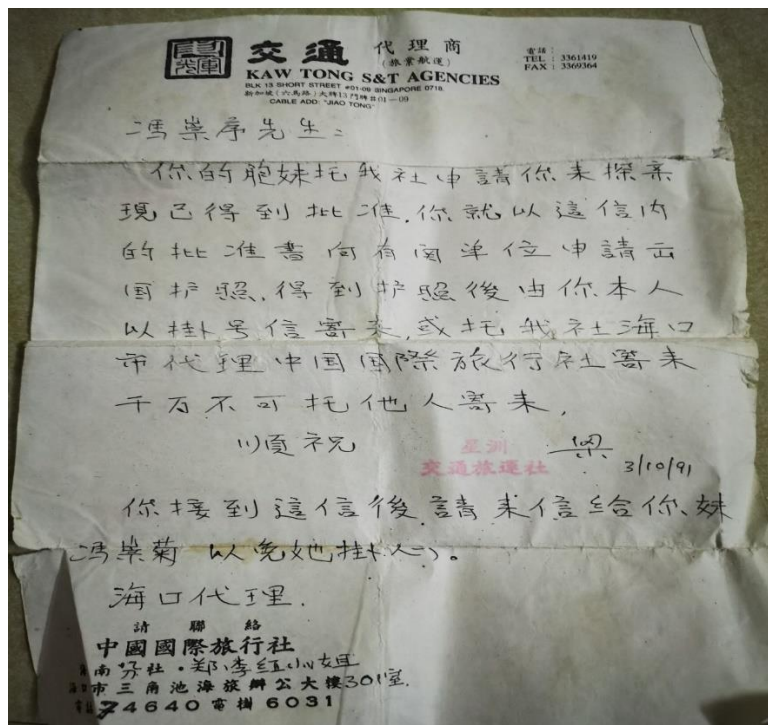 交通 代理商
(旅業航運)
電話:
TEL : 3361419
FAX : 3369364
KAW TONG S&T AGENCIES
BLK 13 SHORT STREET #01-09 SINGAPORE 0718.
新加坡(六馬路)大牌13門牌#01-09
CABLE ADD: "JIAO TONG"
馮業序先生:
你的胞妹托我社申請你来探亲
現已得到批准,你就以這信内
的批准書向有関単位申請出
国护照,得到护照後由你本人
以掛号信寄来,或托我社海口
市代理中国国際旅行社寄来
千万不可托他人寄来,
順祝
星洲
交通旅運社
3/10/91
你接到這信後,請来信給你妹
馮業菊 以免她掛心。
海口代理.
請聯絡
中國國際旅行社
南分社·郑季红小姐
市三角池海旅辦公大樓301室.
24640 電樹 6031